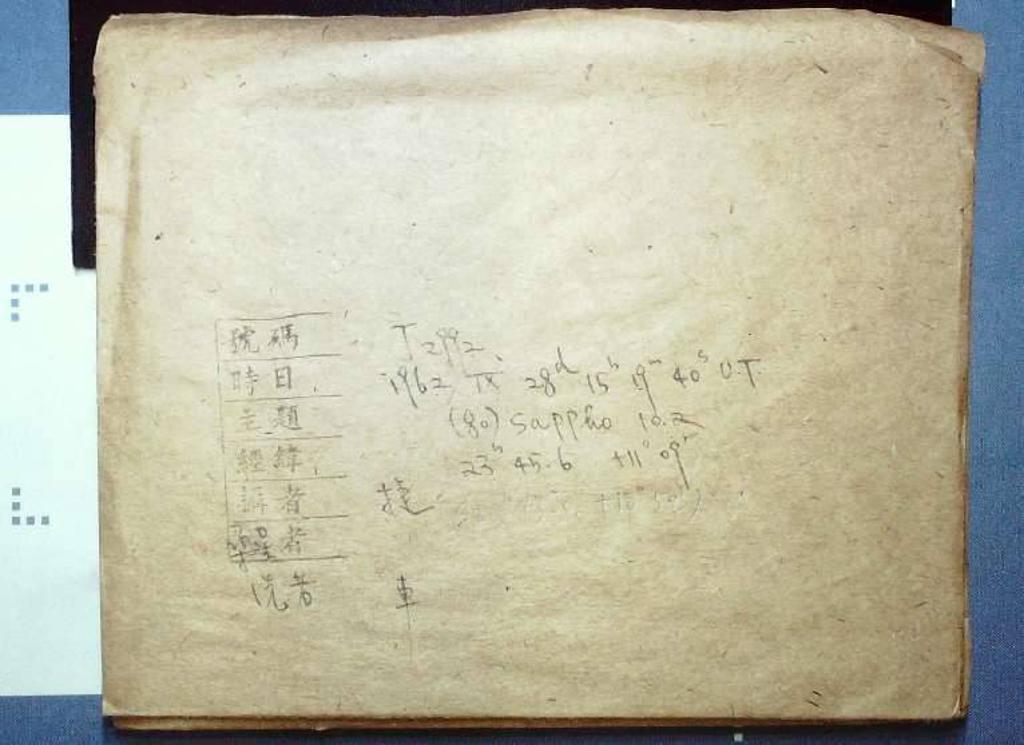 號碼 T2992
時日 1962 IX 28d 15h 19m 40s U.T.
主題 (80) Sappho 10.2
經緯 23h 45.6 +11° 09'
者 捷
者
洗者 車